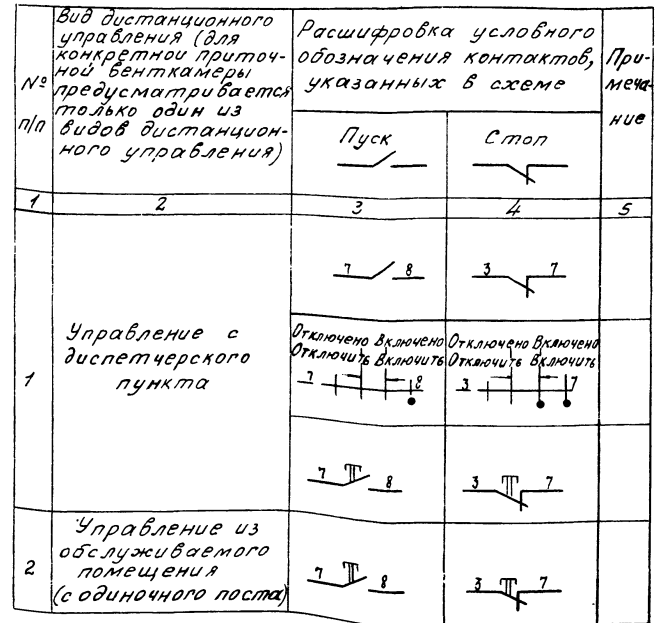 №
п/п
Вид дистанционного
управления (для
конкретной приточ-
ной венткамеры
предусматривается
только один из
видов дистанцион-
ного управления)
Расшифровка условного
обозначения контактов,
указанных в схеме
Пуск
Стоп
При-
меча-
ние
1 2 3 4 5
7 8 3 7
1
Управление с
диспетчерского
пункта
Отключено Включено Отключено Включено
Отключить Включить Отключить Включить
7 8 3 7
7 8 3 7
2
Управление из
обслуживаемого
помещения
(с одиночного поста)
7 8 3 7